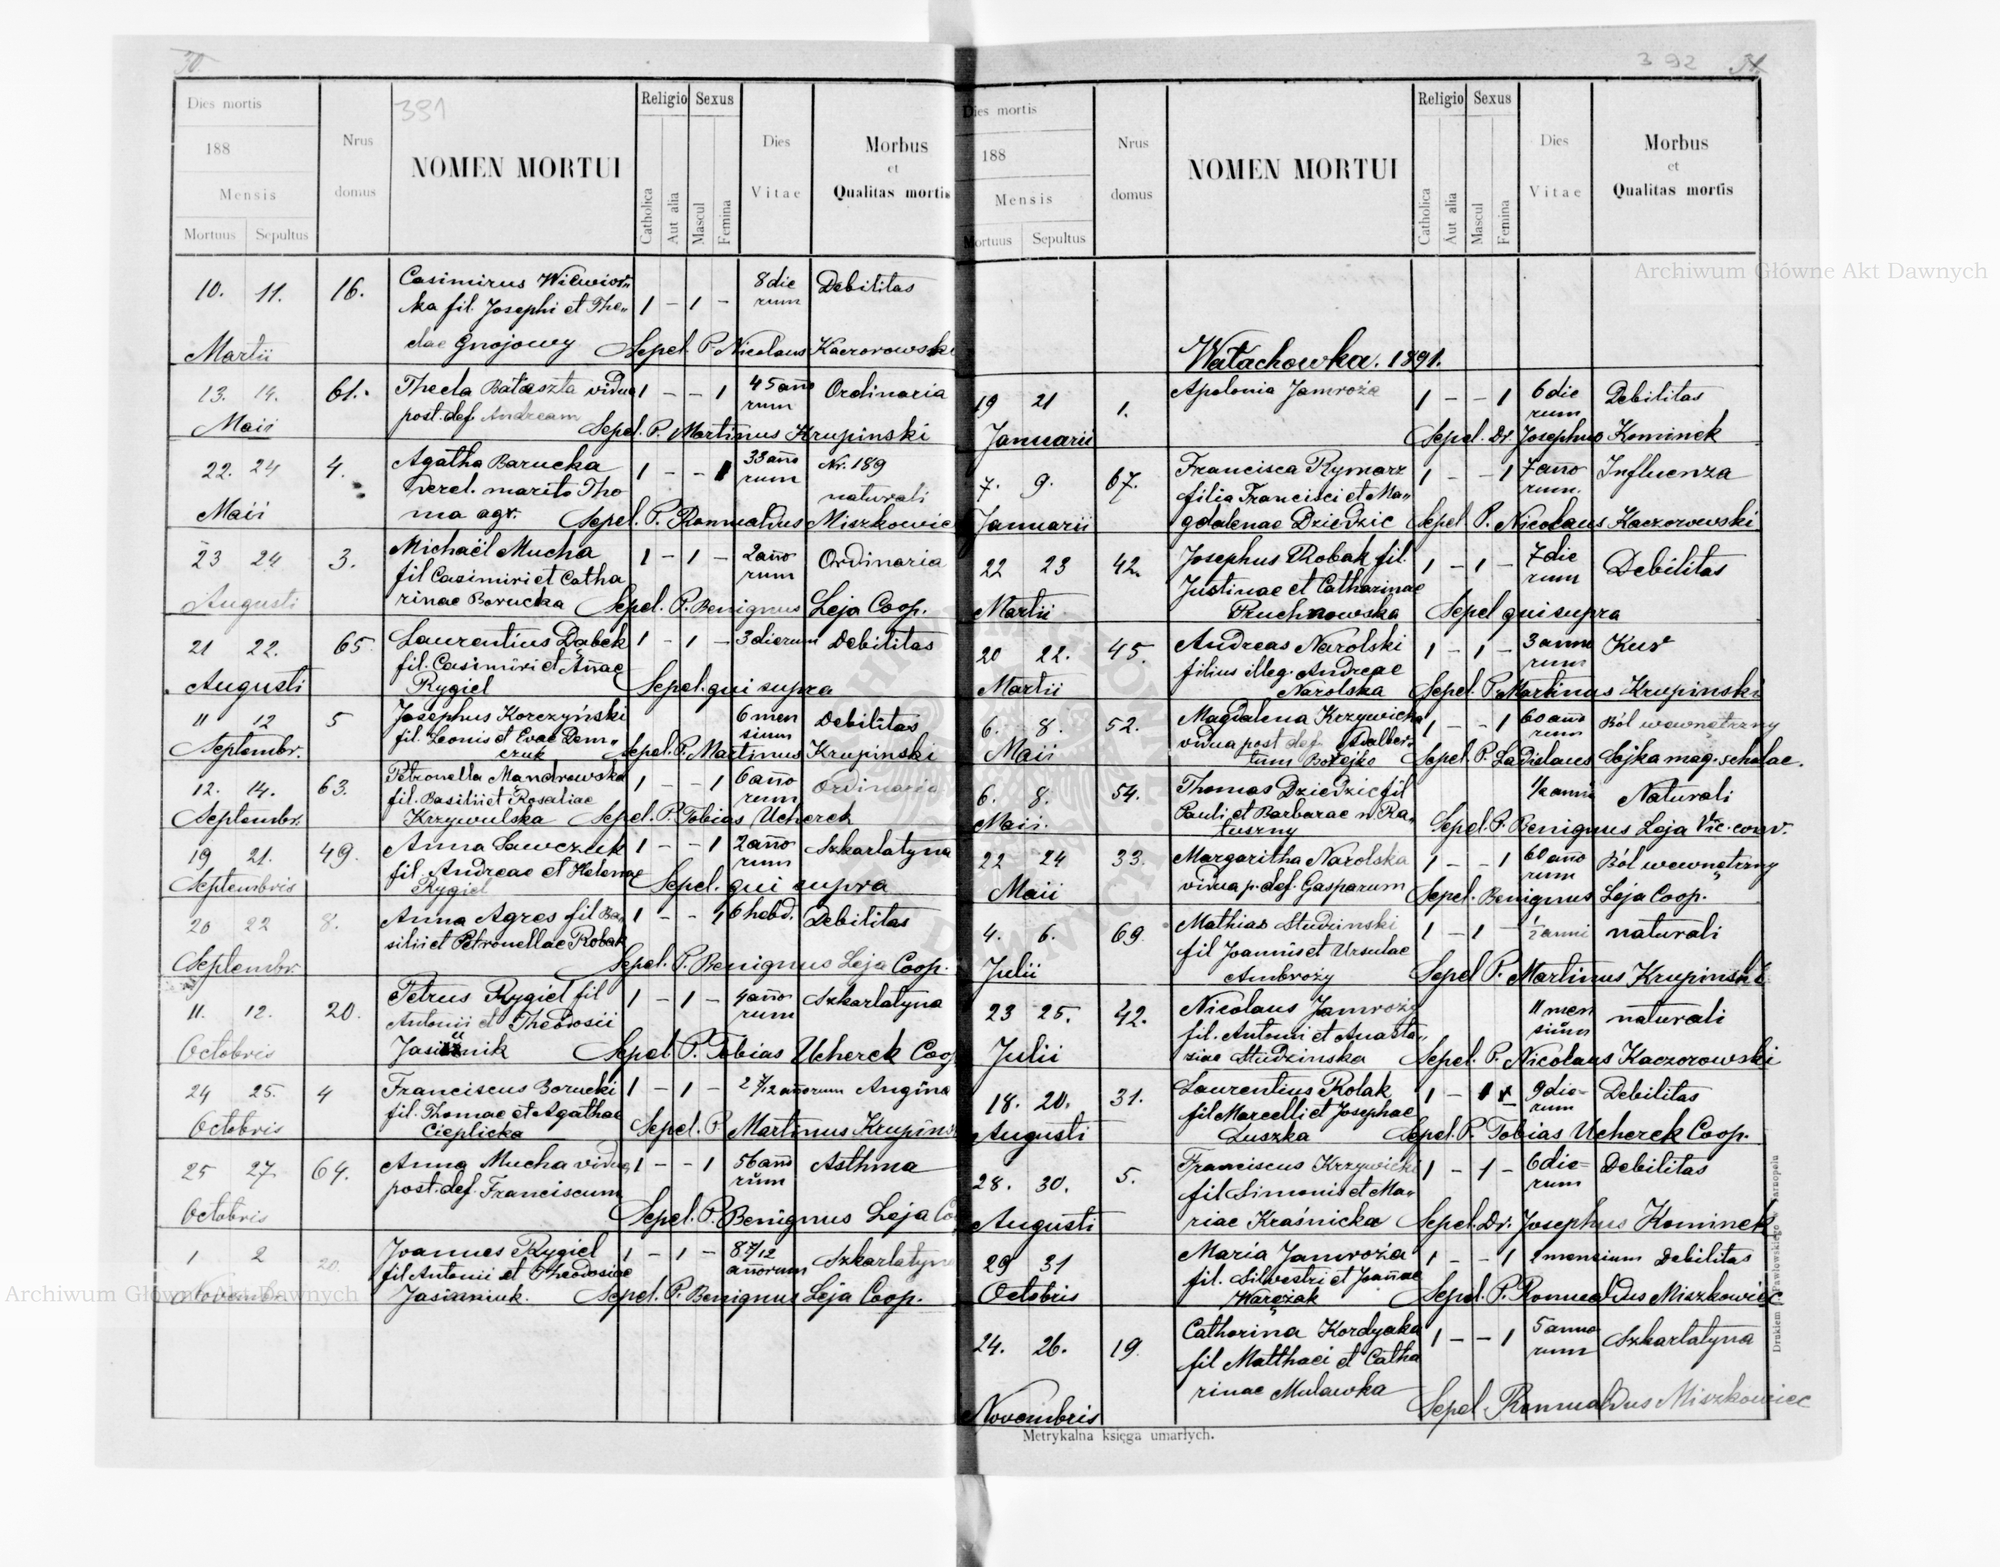 30.
391
Dies mortis
188
Mensis
Mortuus Sepultus
Nrus
domus
NOMEN MORTUI
Religio
Catholica
Aut alia
Sexus
Mascul
Femina
Dies
Vitae
Morbus
et
Qualitas mortis
10. 11. 16. Casimirus Wiewiór„ 1 – 1 – 8 die Debilitas
ka fil. Josephi et The„ rum
Martii clae Gnojowy Sepel. P. Nicolaus Kaczorowski
13. 14. 61. Thecla Bataszta vidua 1 – – 1 45 año Ordinaria
post. def. Andream rum
Maii Sepel. P. Martinus Krupinski
22. 24 4. Agatha Barucka 1 – – 1 33 año Nr. 189
derel. marito Tho rum naturali
Maii ma agr. Sepel. P. Romualdus Miszkowiec
23 24 3. Michaël Mucha 1 – 1 – 2 año Ordinaria
fil Casimiri et Catha rum
Augusti rinae Borucka Sepel. P. Benignus Leja Coop.
21 22. 65 Laurentius Dąbek 1 – 1 – 3 dierum Debilitas
fil. Casimiri et Añae
Augusti Rygiel Sepel. qui supra
11 12 5 Josephus Korczyński 6 men Debilitas
fil. Leonis et Evae Dem„ sium
Septembr. czuk Sepel. P. Martinus Krupinski
12. 14. 63. Petronella Mandrowska 1 – – 1 6 año Ordinaria
fil. Basilii et Rosaliae rum
Septembr. Krzywulska Sepel. P. Tobias Ucherek
19 21. 49. Anna Sawczuk 1 – – 1 2 año Szkarlatyna
fil. Andreae et Helenae rum
Septembris Rygiel Sepel. qui supra
20 22 8. Anna Agres fil Ba„ 1 – – 1 6 hebd. Debilitas
silii et Petronellae Robak
Septembr. Sepel. P. Benignus Leja Coop.
11. 12. 20. Petrus Rygiel fil 1 – 1 – 4 año Szkarlatyna
Antonii et Theodosii rum
Octobris Jasinnik Sepel. P. Tobias Ucherek Coop
24 25. 4 Franciscus Borucki 1 – 1 – 2 7/12 añorum Angina
fil. Thomae et Agathae
Octobris Cieplicka Sepel. P. Martinus Krupins
25 27. 64. Anna Mucha vidua 1 – – 1 56 año Asthma
post. def. Franciscum rum
Octobris Sepel. P. Benignus Leja Co
1 2 20. Joannes Rygiel 1 – 1 – 8 7/12 Szkarlatyna
fil Antonii et Theodosiae añorum
Novembr. Jasinniuk. Sepel. P. Benignus Leja Coop.
392 51.
Dies mortis
188
Mensis
Mortuus Sepultus
Nrus
domus
NOMEN MORTUI
Religio
Catholica
Aut alia
Sexus
Mascul
Femina
Dies
Vitae
Morbus
et
Qualitas mortis
Watachowka. 1891.
19 21 1. Apolonia Jamroża 1 – – 1 6 die Debilitas
rum
Januarii Sepel. Dr. Josephus Kominek
7. 9. 67. Francisca Rymarz 1 – – 1 7 año Influenza
filia Francisci et Ma„ rum.
Januarii gdalenae Dziedzic Sepel P. Nicolaus Kaczorowski
22 23 42. Josephus Robak fil. 1 – 1 – 7 die Debilitas
Justinae et Catharinae rum
Martii Pruchnowska Sepel qui supra
20 22. 45. Andreas Narolski 1 – 1 – 3 anno Kur
filius illeg. Andreae rum
Martii Narolska Sepel. P. Martinus Krupinski
6. 8. 52. Magdalena Krzywicka 1 – – 1 60 año Ból wewnętrzny
vidua post def Adalber„ rum
Maii tum Bożejko Sepel. P. Ladislaus Sojka mag. scholae.
6. 8. 54. Thomas Dziedzic fil 1/2 anni Naturali
Pauli et Barbarae n. Ra„
Maii. tuszny Sepel. P. Benignus Leja Vic. conv.
22 24 33. Margaritha Narolska 1 – – 1 60 año Ból wewnętrzny
vidua p. def. Gasparum rum
Maii Sepel. Benignus Leja Coop.
4. 6. 69 Mathias Studzinski 1 – 1 – 1/2 anni naturali
fil Joannis et Ursulae
Julii Ambroży Sepel P. Martinus Krupinski
23 25. 42. Nicolaus Jamroży 11 men naturali
fil. Antoni et Anasta„ sium
Julii ziae Studzinska Sepel. P. Nicolaus Kaczorowski
18. 20. 31. Laurentius Rolak 1 – 1 9 die= Debilitas
fil Marcelli et Josephae rum
Augusti Luszka Sepel. P. Tobias Ucherek Coop.
28. 30. 5. Franciscus Krzywicki 1 – 1 – 6 die= Debilitas
fil Simonis et Ma„ rum
Augusti riae Kraśnicka Sepel. Dr. Josephus Kominek
29 31 Maria Jamroża 1 – – 1 2 mensium Debilitas
fil. Silvestri et Joañae
Octobris Waręzak Sepel. P. Romualdus Miszkowiec
24. 26. 19. Catharina Kordyaka 1 – – 1 5 anno Szkarlatyna
fil Matthaei et Catha rum
rinae Mulawka
Novembris Sepel. Romualdus Miszkowiec
Metrykalna księga umarłych.
Drukiem J. Pawłowskiego w Tarnopolu
Archiwum Główne Akt Dawnych
Archiwum Główne Akt Dawnych